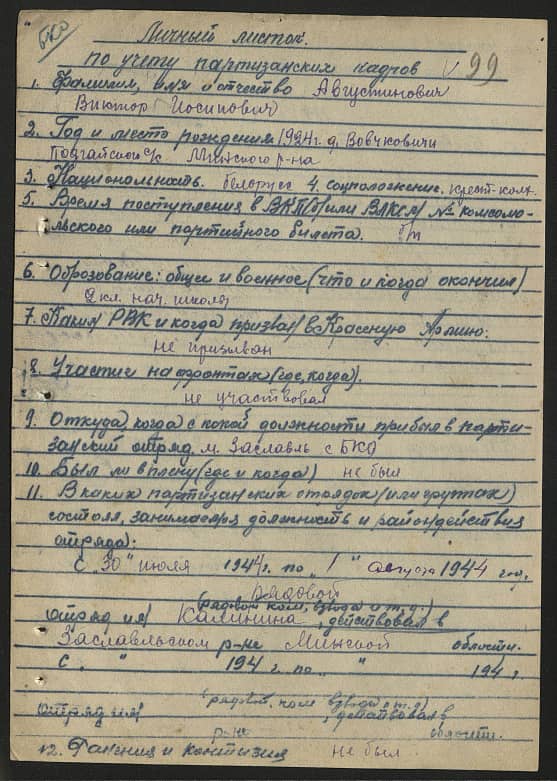 БКО
Личный листок.
по учету партизанских кадров V 99
1. Фамилия, имя и отчество Августинович
Виктор Иосипович
2. Год и место рождения 1924 г. д. Вовчковичи
Подгайской с/с Минского р-на
3. Национальность. белорус 4. соцположение. крест-колх.
5. Время поступления в ВКП(б) или ВЛКСМ № комсомо-
льского или партийного билета. б/п
6. Оброзование: общее и военное (что и когда окончил)
2 кл. нач. школы
7. Каким РВК и когда призван в Красную Армию.
не призыван
8. Участие на фронтах (где, когда).
не участвовал
9. Откуда, когда с какой должности прибыл в парти-
занский отряд м. Заславль с БКО
10. Был ли в плену (где и когда) не был
11. В каких партизанских отрядах (или группах)
состоял, занимаемая должность и район действия
отряда.
С "30" июля 1944 г. по "1" августа 1944 год.
рядовой
(рядовой ком, взвода и т, д.)
отряд им Калинина, действовал в
Заславльском р-не Минской области.
С " " 194 г. по " " 194 г.
(рядов. ком взвода и т. д)
отряд им , действовал в
р-не области.
12. Ранения и контузия не был